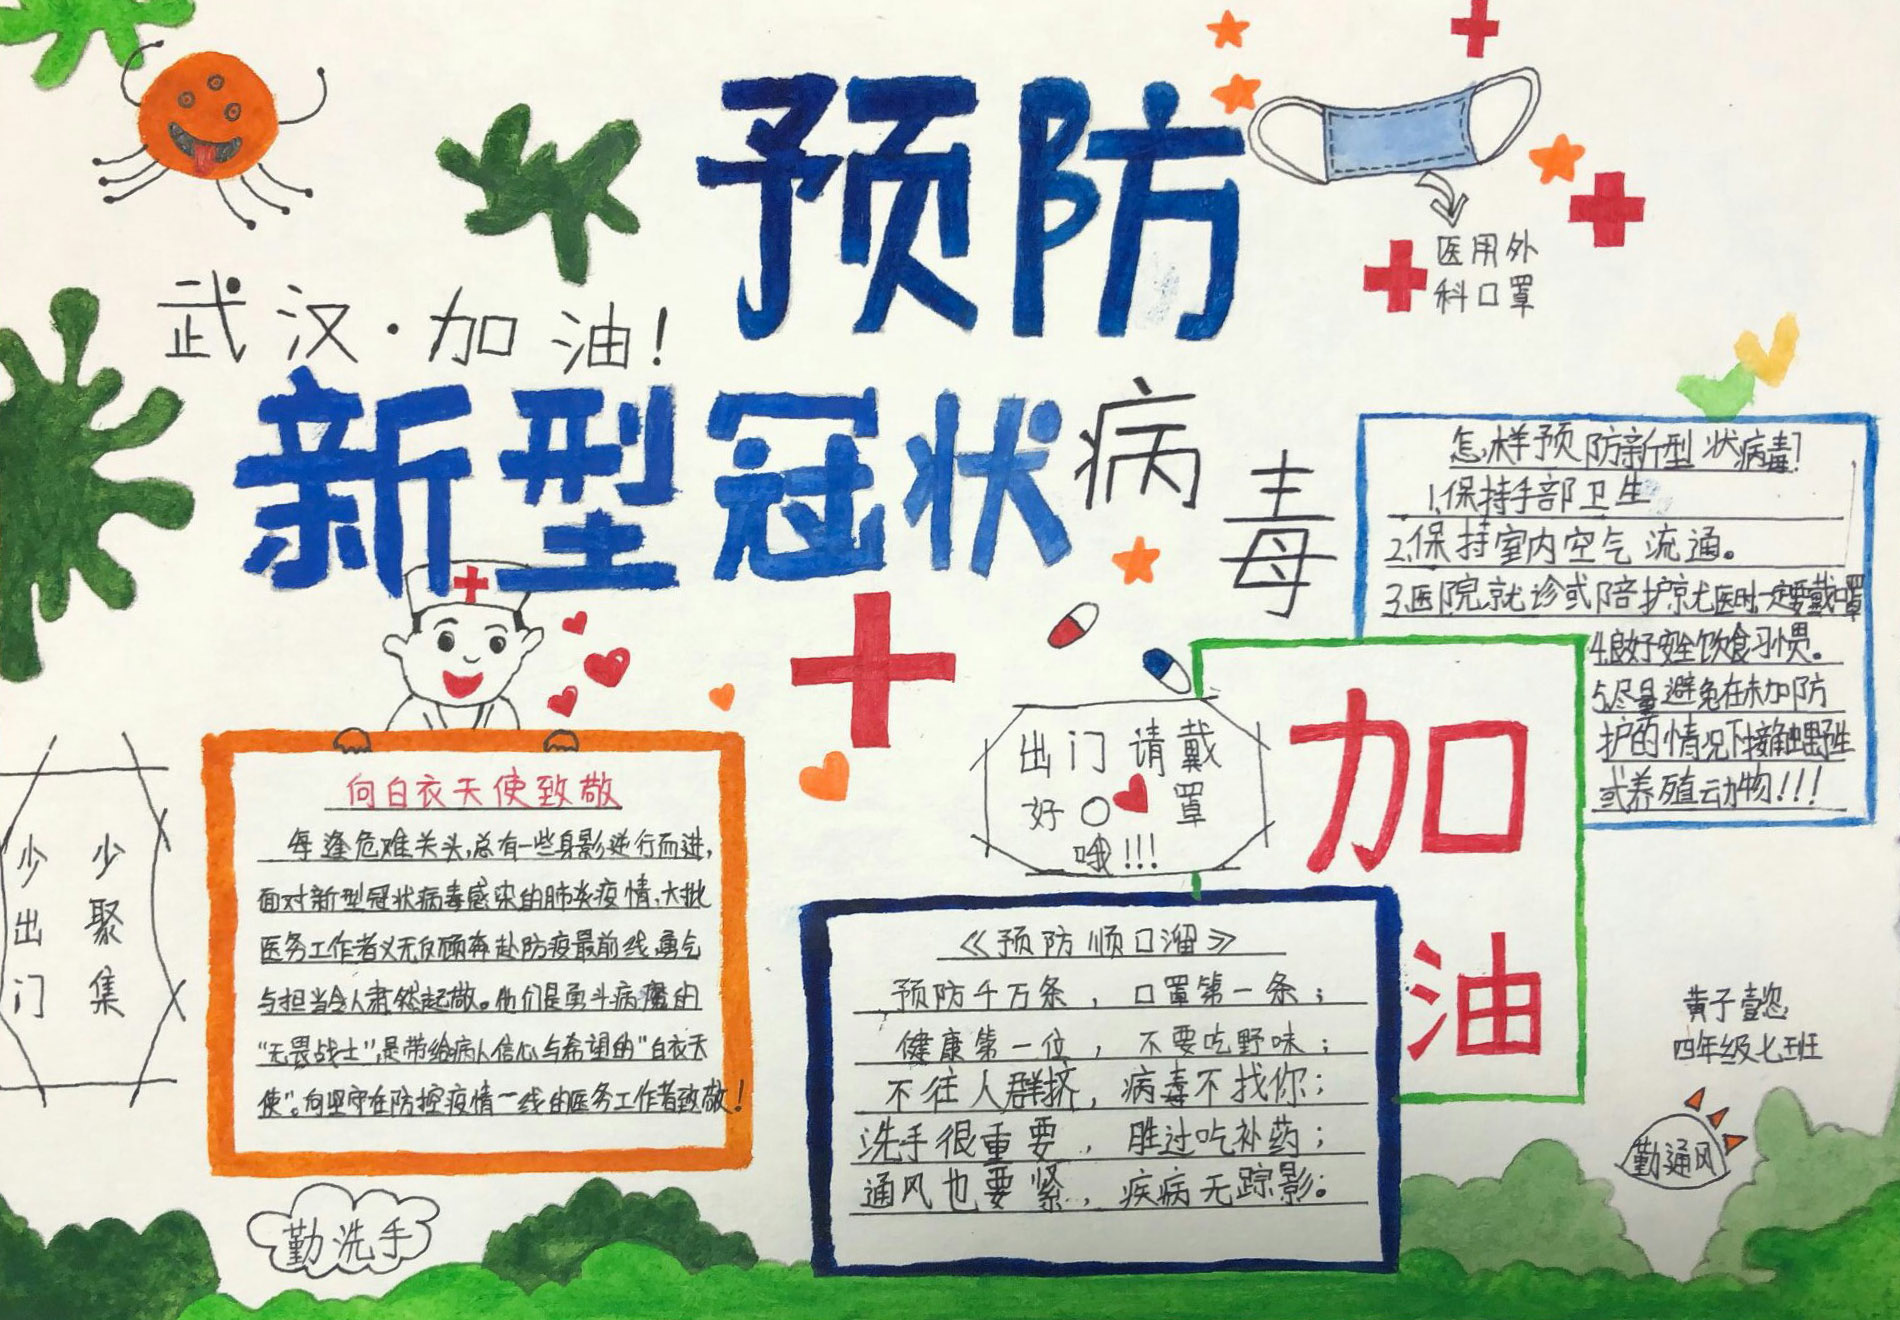 预防
医用外
科口罩
武汉·加油!
新型冠状病毒
怎样预防新型状病毒?
1.保持手部卫生
2.保持室内空气流通。
3.医院就诊或陪护就医时一定要戴口罩
4.良好安全饮食习惯。
5.尽量避免在未加防
护的情况下接触野生
或养殖动物!!!
加油
出门请戴
好口罩
哦!!!
向白衣天使致敬
每逢危难关头,总有一些身影逆行而进,
面对新型冠状病毒感染的肺炎疫情,大批
医务工作者义无反顾奔赴防疫最前线,勇气
与担当令人肃然起敬。他们是勇斗病魔的
“无畏战士”,是带给病人信心与希望的“白衣天
使”。向坚守在防控疫情一线的医务工作者致敬!
少出门
少聚集
《预防顺口溜》
预防千万条，口罩第一条；
健康第一位，不要吃野味；
不往人群挤，病毒不找你；
洗手很重要，胜过吃补药；
通风也要紧，疾病无踪影。
黄子壹
四年级七班
勤通风
勤洗手